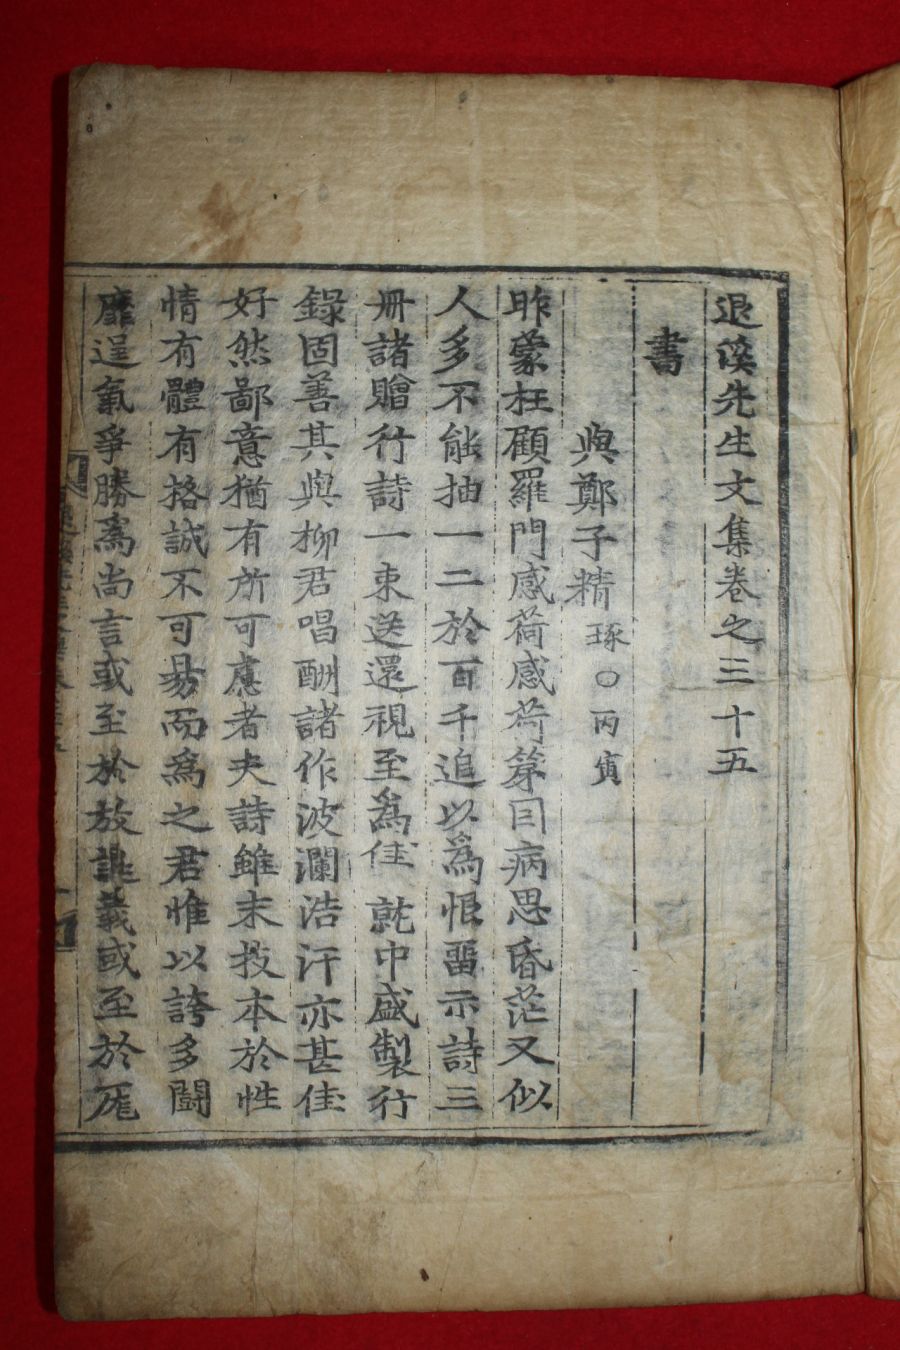 退溪先生文集卷之三十五
書
與鄭子精 琢○丙寅
昨蒙枉顧羅門感荷感荷第因病思昏茫又似
人多不能抽一二於百千追以爲恨留示詩三
冊諸贈行詩一束送還視至爲佳就中盛製行
錄固善其與柳君唱酬諸作波瀾浩汗亦甚佳
好然鄙意猶有所可慮者夫詩雖末技本於性
情有體有格誠不可易而爲之君惟以誇多鬪
靡逞氣爭勝爲尚言或至於放誕義或至於厖